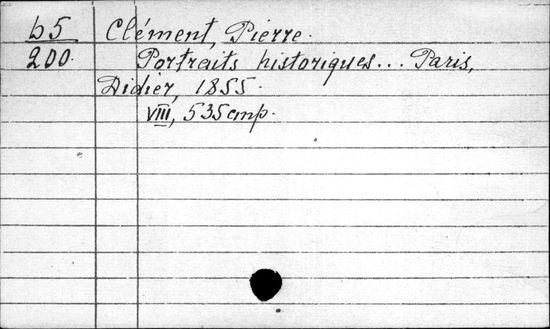 b5 Clément, Pierre.
200. Portraits historiques... Paris,
Didier, 1855.
VIII, 535 cmp.